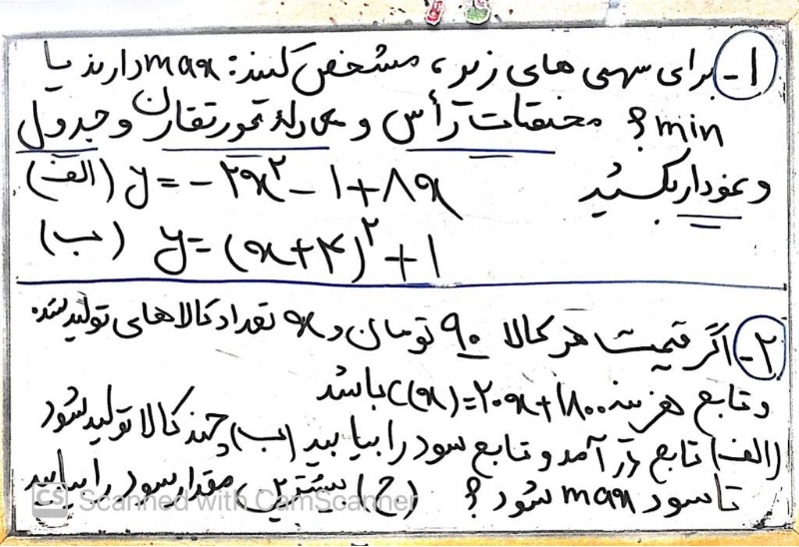 ۱- برای سهمی های زیر، مشخص کنید: max دارند یا
min؟ مختصات رأس و معادلهٔ محور تقارن و جدول
و نمودار بکشید
الف) y = -۲x² - ۱ + ۸x
ب) y = (x+۴)² + ۱
۲- اگر قیمت هر کالا ۹۰ تومان و x تعداد کالاهای تولید شده
و تابع هزینه C(x) = ۲۰x + ۱۸۰۰ باشد
الف) تابع درآمد و تابع سود را بیابید ب) چند کالا تولید شود
تا سود max شود؟ ج) بیشترین مقدار سود را بیابید
CS Scanned with CamScanner